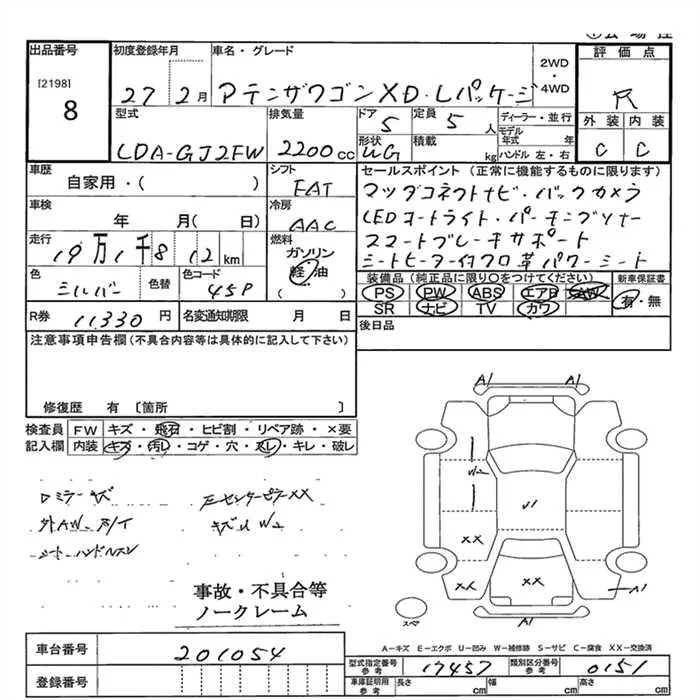 出品番号
[2198]
8
初度登録年月
27 2月
車名・グレード
アテンザワゴン XD・Lパッケージ
2WD
・
4WD
評価点
R
外装 内装
C C
型式
LDA-GJ2FW
排気量
2200cc
ドア
5
定員
5人
形状
WG
積載
kg
ディーラー・並行
モデル
年式 年
ハンドル 左・右
車歴
自家用・( )
シフト
FAT
車検
年 月( 日)
冷房
AAC
走行
19万1千812km
燃料
ガソリン
軽油
( )
色
シルバー
色替
色コード
45P
R券
11330円
名変通知期限 月 日
セールスポイント(正常に機能するものに限ります)
マツダコネクトナビ・バックカメラ
LEDオートライト・パーキングソナー
スマートブレーキサポート
シートヒーター付クロ革パワーシート
装備品(純正品に限り○をつけてください)
PS PW ABS エアB AW
SR ナビ TV カワ
新車保証書
有・無
後日品
注意事項申告欄(不具合内容等は具体的に記入して下さい)
修復歴 有 〔箇所 〕
検査員
記入欄
FW キズ・飛石・ヒビ割・リペア跡・×要
内装 キズ・汚レ・コゲ・穴・スレ・キレ・破レ
ロミラーキズ
外AW
シートハンドルスレ
センターピラXX
キズU W2
事故・不具合等
ノークレーム
A1 A1
W2
U1
XX
XX
XX
A1
A1
スペア
A-キズ E-エクボ U-凹み W-補修跡 S-サビ C-腐食 XX-交換済
車台番号
201054
登録番号
型式指定番号
参考
17457
類別区分番号
参考
0151
車庫証明用
参考
長さ cm
幅 cm
高さ cm